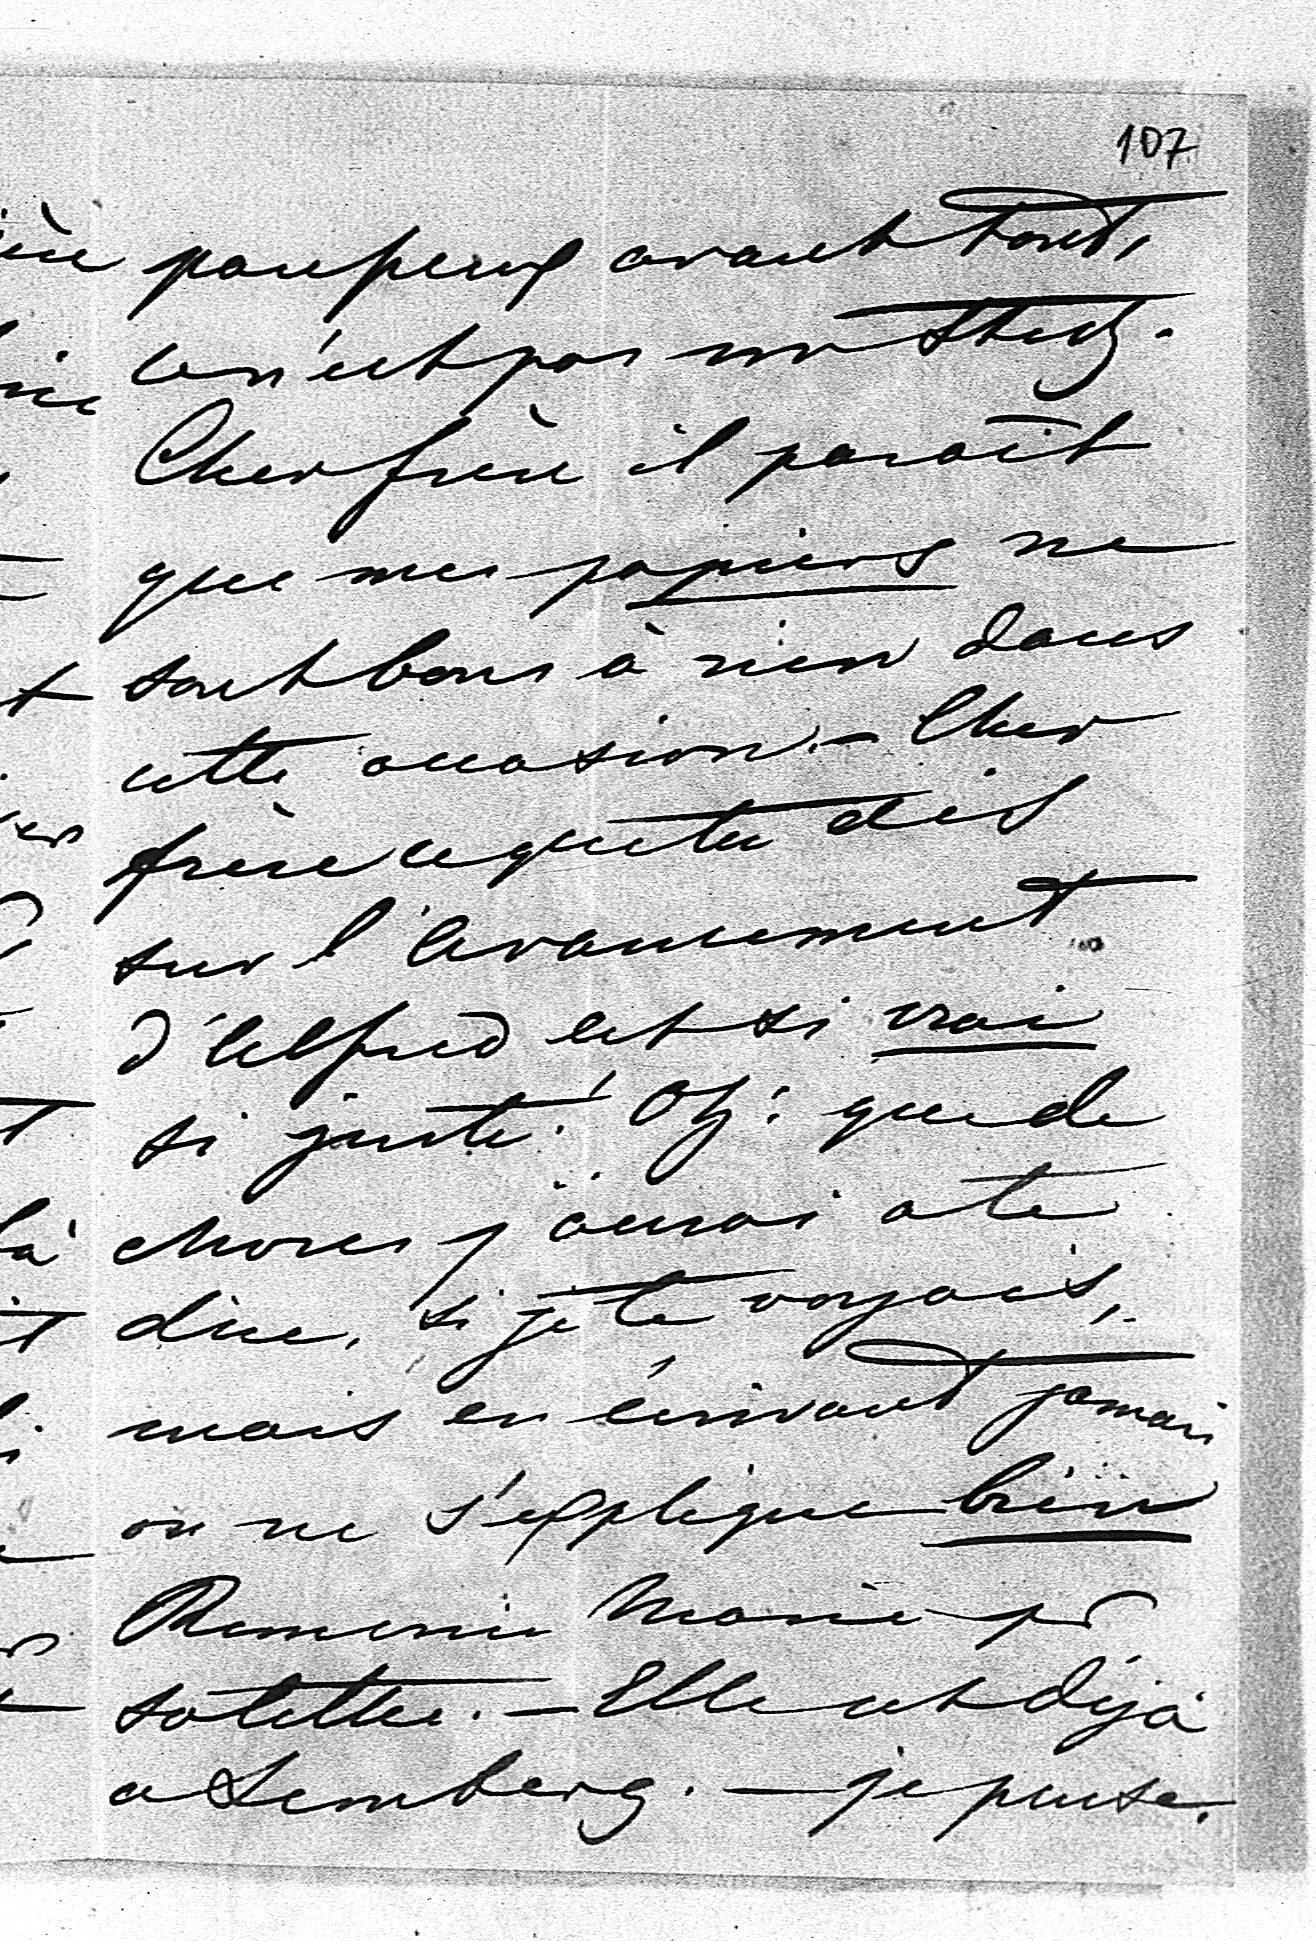 107
avant tout,
ce n'est pas un
Cher frère il paraît
que mes papiers ne
sont bons à rien dans
cette occasion. – Cher
frère ce que tu dis
sur l'avancement
d'Alfred est si vrai
si juste! que de
choses j'aurai a te
dire, si je te voyais,
mais en écrivant jamais
on ne s'explique bien
Remercie Marie pr
sa lettre. – Elle est déjà
a Lemberg. – je pense.